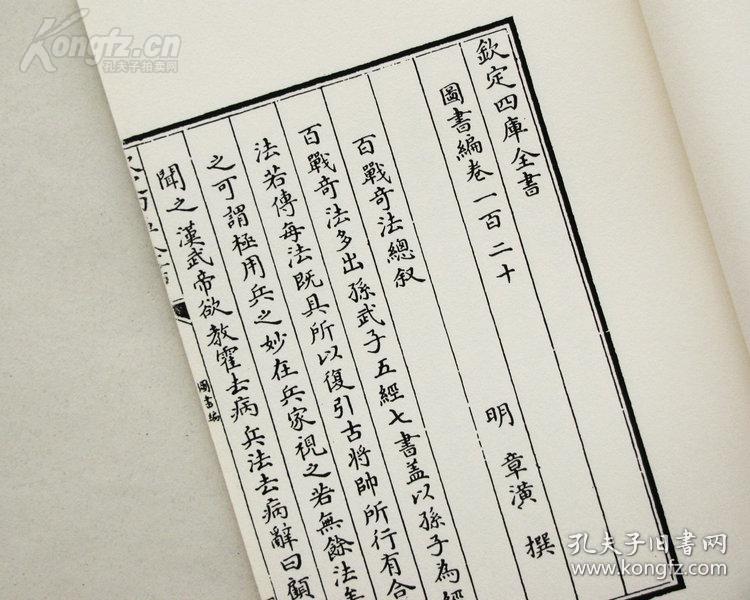 欽定四庫全書
圖書編卷一百二十
明 章潢 撰
百戰奇法總叙
百戰奇法多出孫武子五經七書蓋以孫子為經
法若傳每法既具所以復引古將帥所行有合
之可謂極用兵之妙在兵家視之若無餘法
聞之漢武帝欲教霍去病兵法去病辭曰顧
圖書編
Kongfz.cn
孔夫子拍卖网
孔夫子旧书网
www.kongfz.com